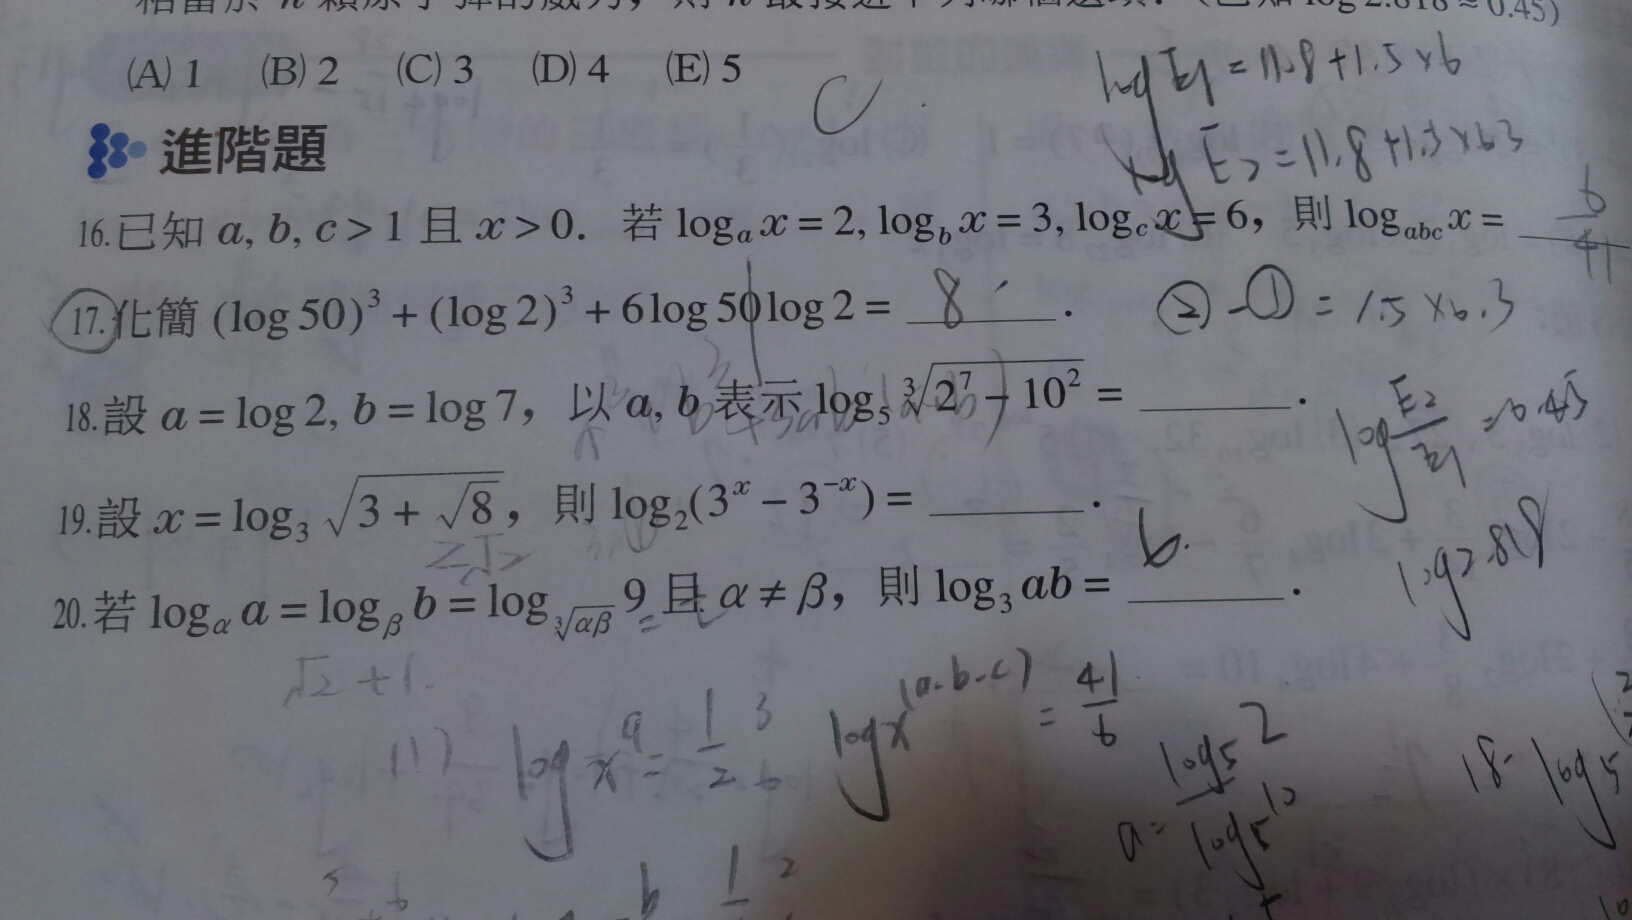 (A) 1 (B) 2 (C) 3 (D) 4 (E) 5
C
log E1 = 11.8 + 1.5 × 6
log E2 = 11.8 + 1.5 × 6.3
進階題
16.已知 a, b, c > 1 且 x > 0. 若 logₐ x = 2, log_b x = 3, log_c x = 6, 則 log_abc x = 6/41
17.化簡 (log 50)³ + (log 2)³ + 6 log 50 log 2 = 8.
② - ① = 1.5 × 6.3
18.設 a = log 2, b = log 7, 以 a, b 表示 log₅ ∛(2⁷ − 10²) = ____.
log E2/E1 = 0.45
19.設 x = log₃ √(3 + √8), 則 log₂(3ˣ − 3⁻ˣ) = ____.
2√2
log 2.818
20.若 log_α a = log_β b = log_∛(αβ) 9 且 α ≠ β, 則 log₃ ab = 6.
= t
√2 + 1.
log x^a = 1/2
log x^(a·b·c) = 41/6
a = log5 2 / log5 10
18. log5